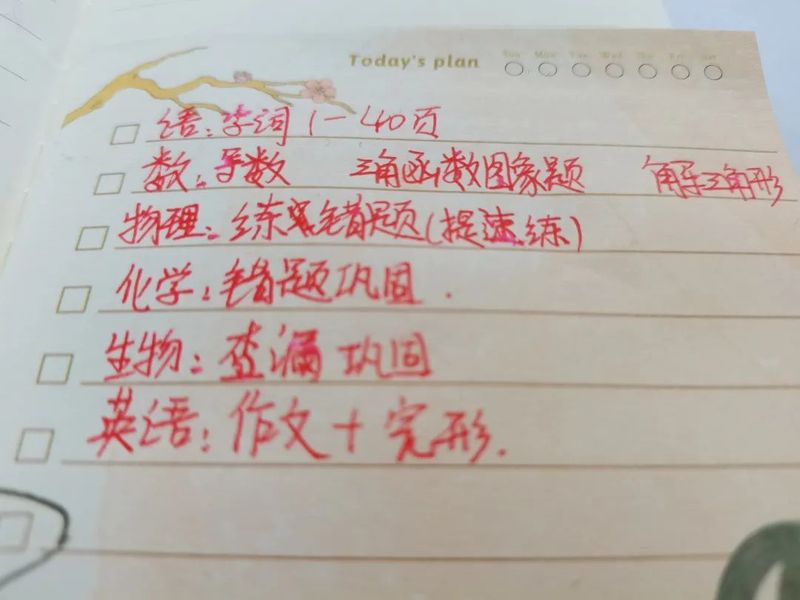 Today's plan
Sun Mon Tue Wed Thu Fri Sat
语:字词 1-40页
数:导数 三角函数图象题 解三角形
物理:练错题页(提速练)
化学:错题巩固.
生物:查漏巩固
英语:作文+完形.